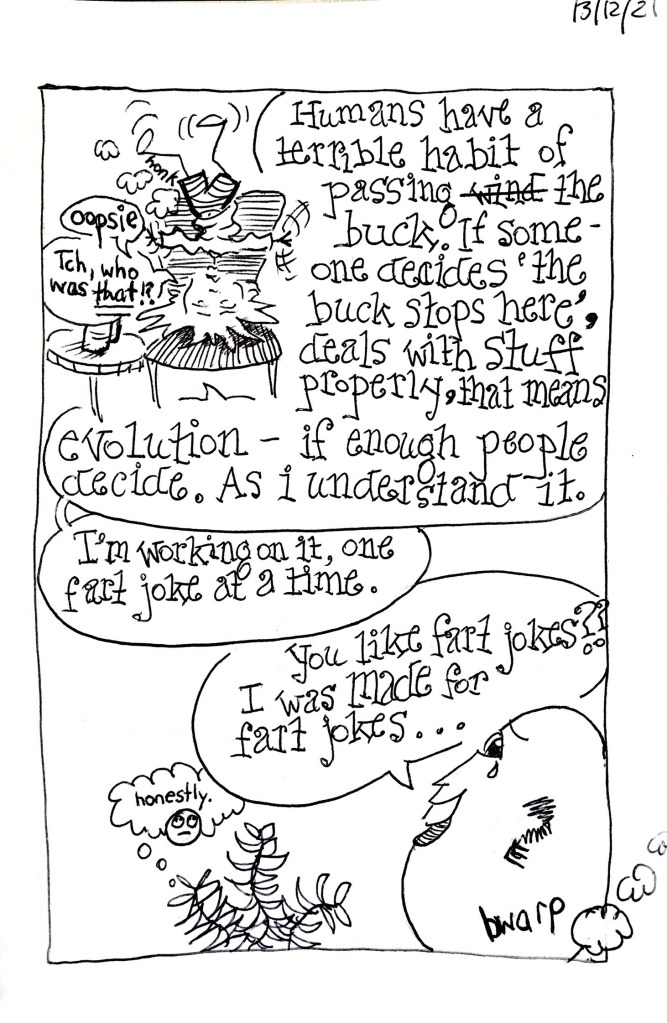 13/12/21
Humans have a
terrible habit of
passing wind the
buck. If some-
one decides 'the
buck stops here',
deals with stuff
properly, that means
evolution - if enough people
decide. As i understand it.
honk
oopsie
Tch, who
was that!?!
I'm working on it, one
fart joke at a time.
You like fart jokes??
I was made for
fart jokes...
honestly.
bwarp